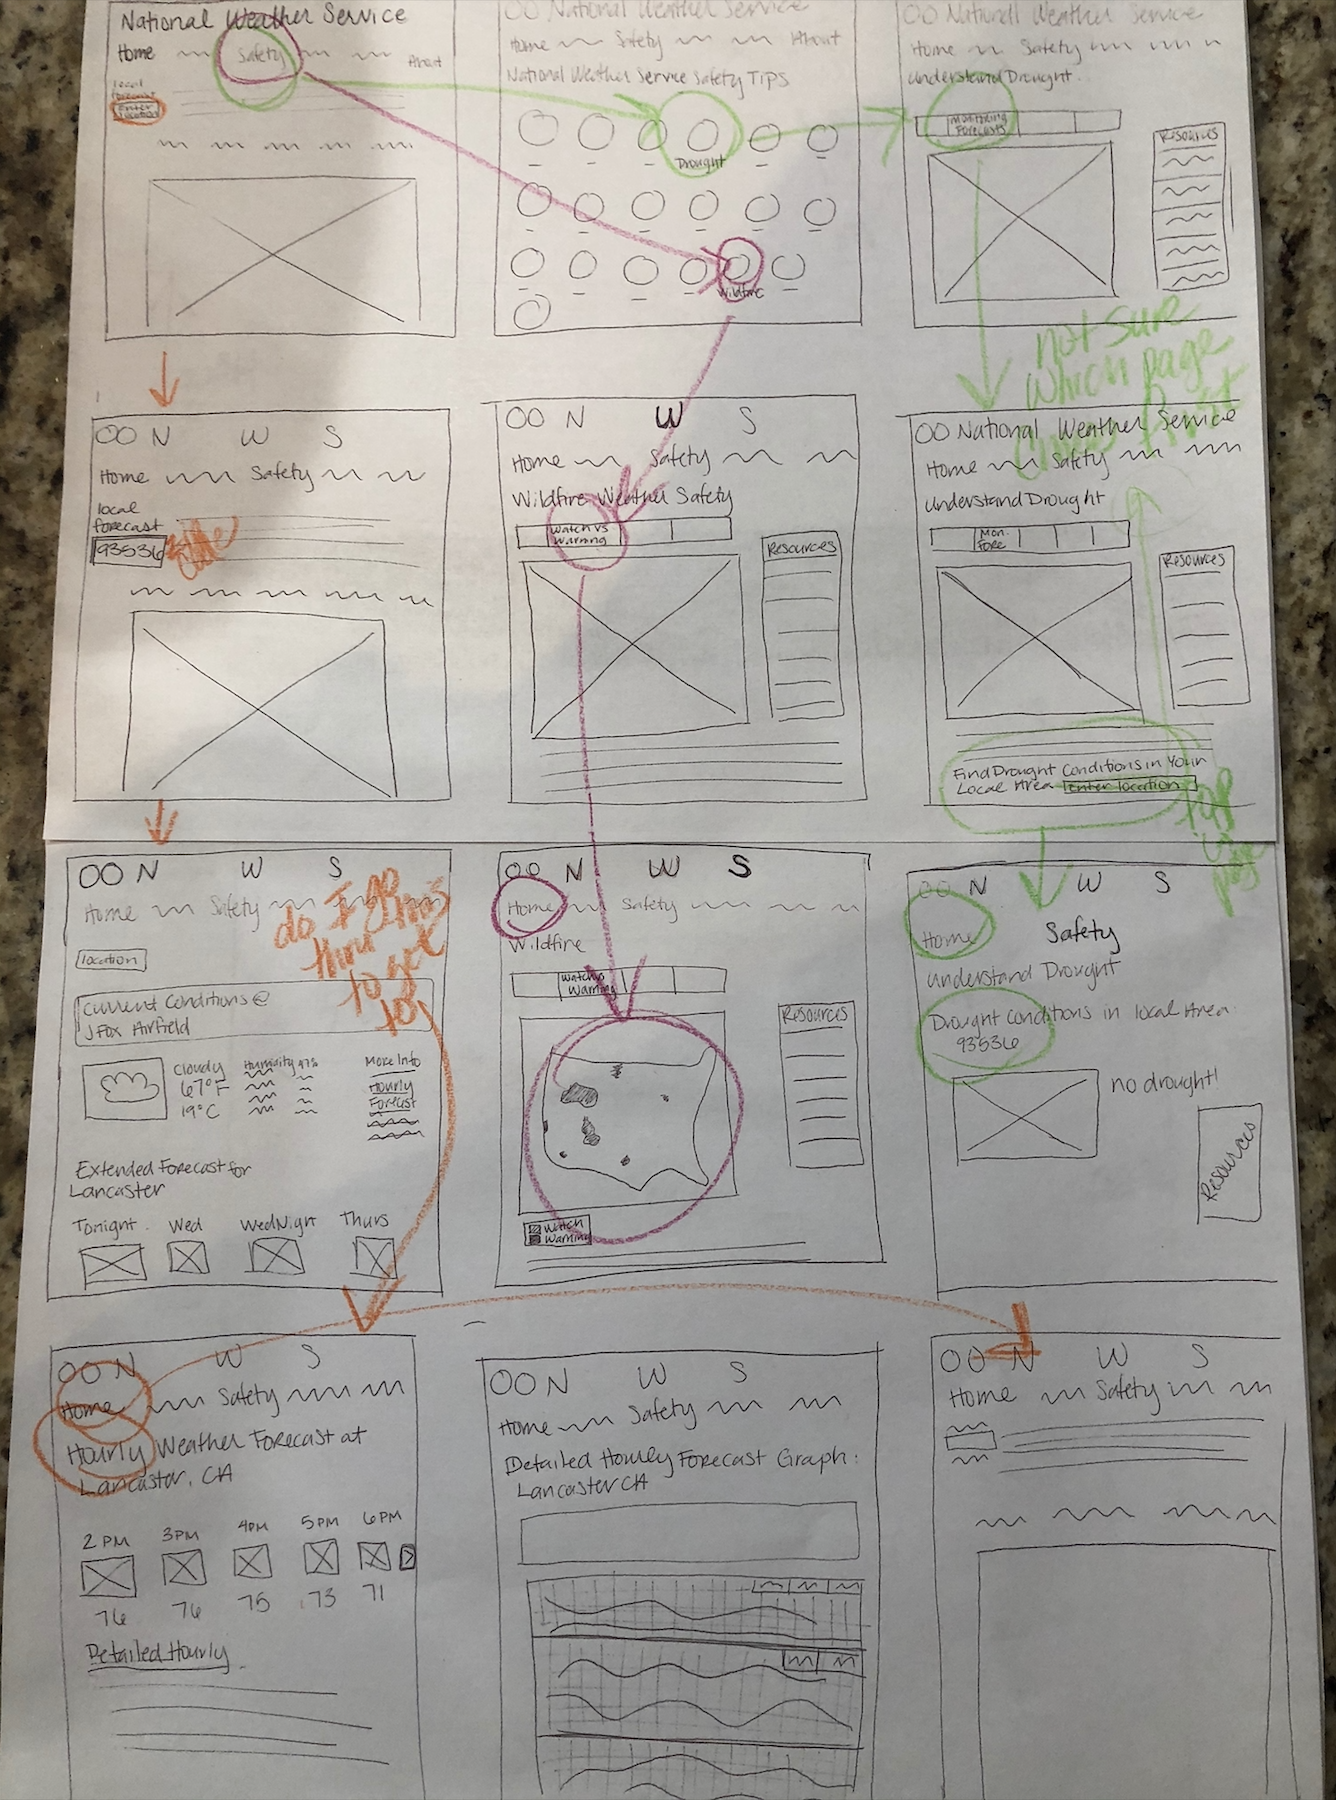 National Weather Service
Home Safety About
local
forecast
Enter
location
National Weather Service
Home Safety About
National Weather Service Safety Tips
Drought
Wildfire
National Weather Service
Home Safety
Understand Drought
Monitoring
Forecasts
Resources
not sure
which page
first
N W S
Home Safety
local
forecast
93536
N W S
Home Safety
Wildfire Weather Safety
Watch vs
Warning
Resources
National Weather Service
Home Safety
Understand Drought
Mon.
Fore
Resources
Find Drought Conditions in Your
Local Area enter location
page
N W S
Home Safety
do I go
thru this
to get
to
location
Current Conditions @
J Fox Airfield
Cloudy
67°F
19°C
Humidity 47%
More Info
Hourly
Forecast
Extended Forecast for
Lancaster
Tonight Wed Wed Night Thurs
N W S
Home Safety
Wildfire
Watch
Warning
Resources
Watch
Warning
N W S
Home Safety
Understand Drought
Drought Conditions in local Area:
93536
no drought!
Resources
N W S
Home Safety
Hourly Weather Forecast at
Lancaster, CA
2 PM 3PM 4PM 5PM 6PM
76 76 75 73 71
Detailed Hourly
N W S
Home Safety
Detailed Hourly Forecast Graph:
Lancaster CA
N W S
Home Safety